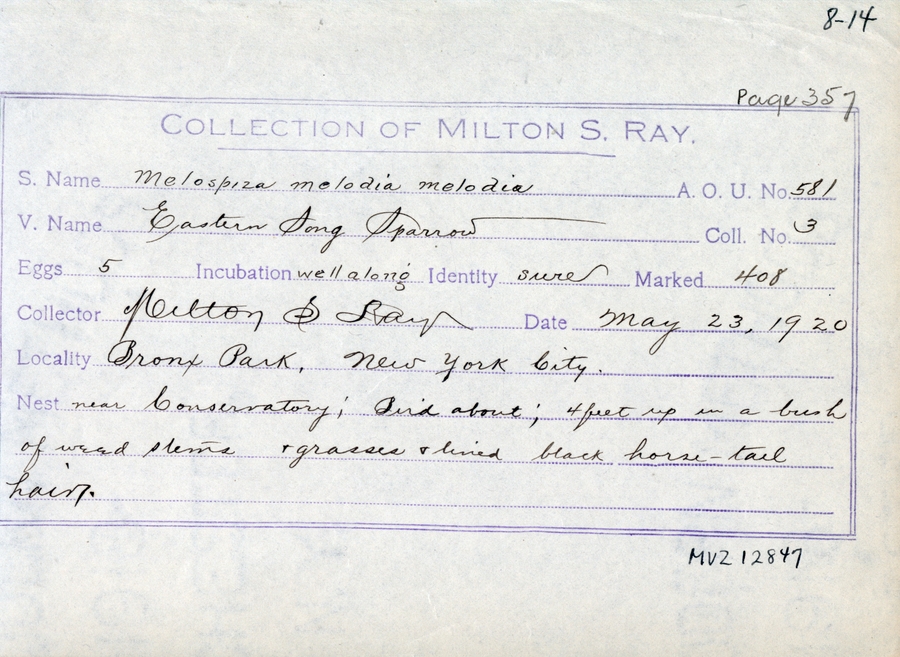 8-14
Page 357
COLLECTION OF MILTON S. RAY.
S. Name Melospiza melodia melodia A. O. U. No. 581
V. Name Eastern Song Sparrow Coll. No. 3
Eggs 5 Incubation well along Identity sure Marked 408
Collector Milton S Ray Date May 23, 1920
Locality Bronx Park, New York City.
Nest near Conservatory; Bird about; 4 feet up in a bush
of weed stems & grasses & lined black horse-tail
hair.
MVZ 12847